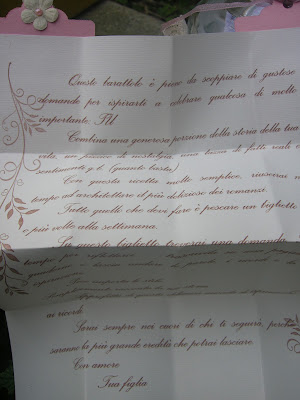 Questo barattolo è pieno da scoppiare di gustose
domande per ispirarti a celebrare qualcosa di molto
importante: TU.
Combina una generosa porzione della storia della tua
vita, un pizzico di nostalgia, una tazza di fatti reali e
sentimento q.b. (quanto basta)
Con questa ricetta molto semplice, riuscirai nel
tempo ad architettare il più delizioso dei romanzi.
Tutto quello che devi fare è pescare un biglietto
o più volte alla settimana.
Su questo biglietto troverai una domanda
tempo per riflettere
ai ricordi.
Sarai sempre nei cuori di chi ti seguirà, perché
saranno la più grande eredità che potrai lasciare.
Con amore
Tua figlia